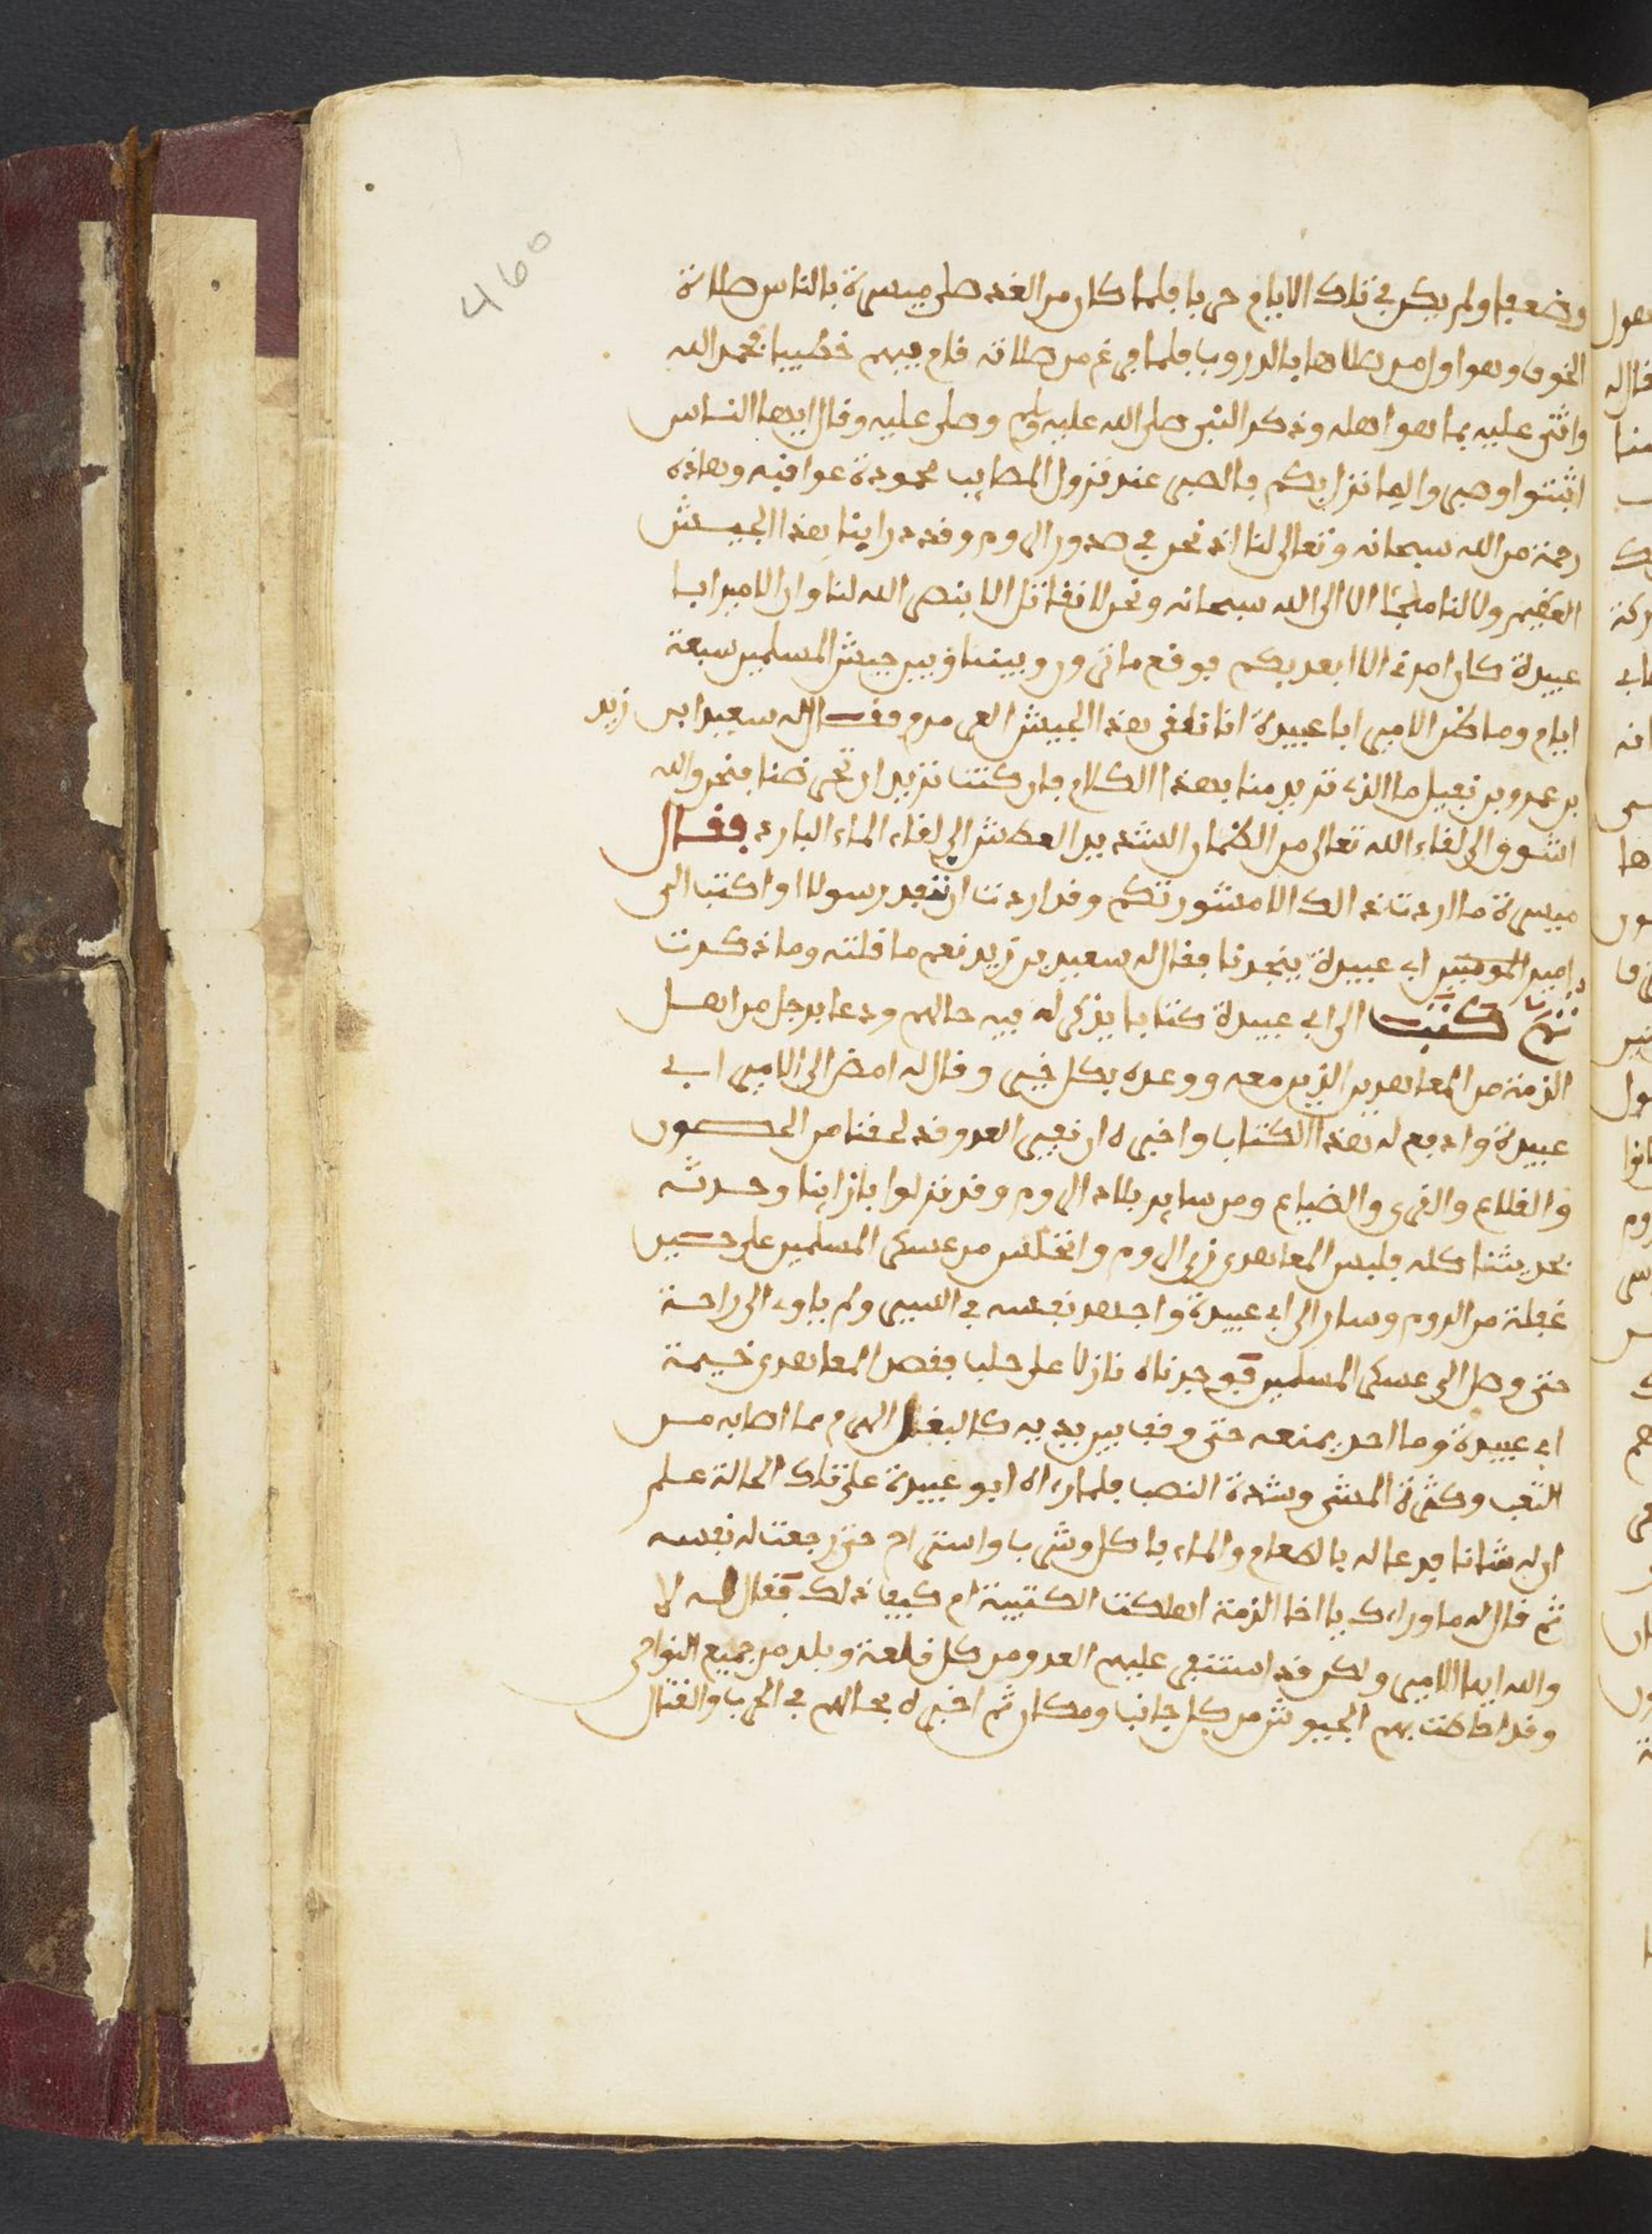 وضعفا ولم يكن في تلك الايام حربا فلما كان من الغد صلى ميسرة بالناس صلاة
الخوف وهوا اول من صلاها بالدروب فلما فرغ من صلاته قام فيهم خطيبا فحمد الله
واثنى عليه بما هوا هله وذكر النبي صلى الله عليه وسلم وصلى عليه وقال ايها الناس
اثبتوا وصبروا لما نزل بكم فالصبر عند نزول المصايب محمودة عواقبه وهاذه
رحمة من الله سبحانه وتعالى لنا اذ نحن في صدور الروم وقد دراينا هذا الجيش
العظيم ولا لنا ملجئا الا الى الله سبحانه ونحن لا نقاتل الا بنصر الله لنا وان الامير ابا
عبيدة كان امرني الا ابعد بكم فوقع ما ترون وبيننا وبين جيش المسلمين سبعة
ايام وما ظن الامير ابا عبيدة اننا نلقى هذا الجيش العرمرم فقال له سعيد ابن زيد
بن عمرو بن نفيل ما الذي تريد منا بهذا الكلام فان كنت تريد ان تحرضنا فنحن والله
اشوق الى لقاء الله تعالى من الظمان الشديد العطش الى لقاء الماء البارد فقال
ميسرة ما اردت ذالك الا مشورتكم وقد اردت ان انفد رسولا او اكتب الى
امير المومنين ابي عبيدة ينجدنا فقال له سعيد بن زيد نعم ما قلته وما ذكرت
ثم كتب الى ابي عبيدة كتابا يذكر له فيه حالهم ودعا برجل من اهل
الذمة من المعاهدين الذين معه ووعده بكل خير وقال له امض الى الامير ابي
عبيدة وادفع له هذا الكتاب واخبره ان نفير العدو قد لحقنا من الحصون
والقلاع والقرى والضياع ومن ساير بلاد الروم وقد نزلوا بازاينا وحدثه
بحديثنا كله فلبس المعاهدي زي الروم وانختلس من عسكر المسلمين على حسين
غفلة من الروم وسار الى ابي عبيدة واجهد نفسه في السير ولم ياوي الى راحة
حتى وصل الى عسكر المسلمين فوجدناه نازلا على حلب فقصد المعاهدي خيمة
ابي عبيدة وما احد يمنعه حتى وقف بين يديه كالبغل الهرم مما اصابه من
التعب وكثرة المشي وشدة النصب فلما راه ابو عبيدة على تلك الحالة علم
ان له شانا فدعا له بالطعام والماء فاكل وشرب واستراح حتى رجعت له نفسه
ثم قال له ما وراءك يا اخا الذمة اهلكت الكتيبة ام كيف ذلك فقال له لا
والله ايها الامير ولكن قد استنفر عليهم العدو من كل قلعة وبلد من جميع النواحي
وقد احاطت بهم الجيوش من كل جانب ومكان ثم اخبره بحالهم في الحرب والقتال